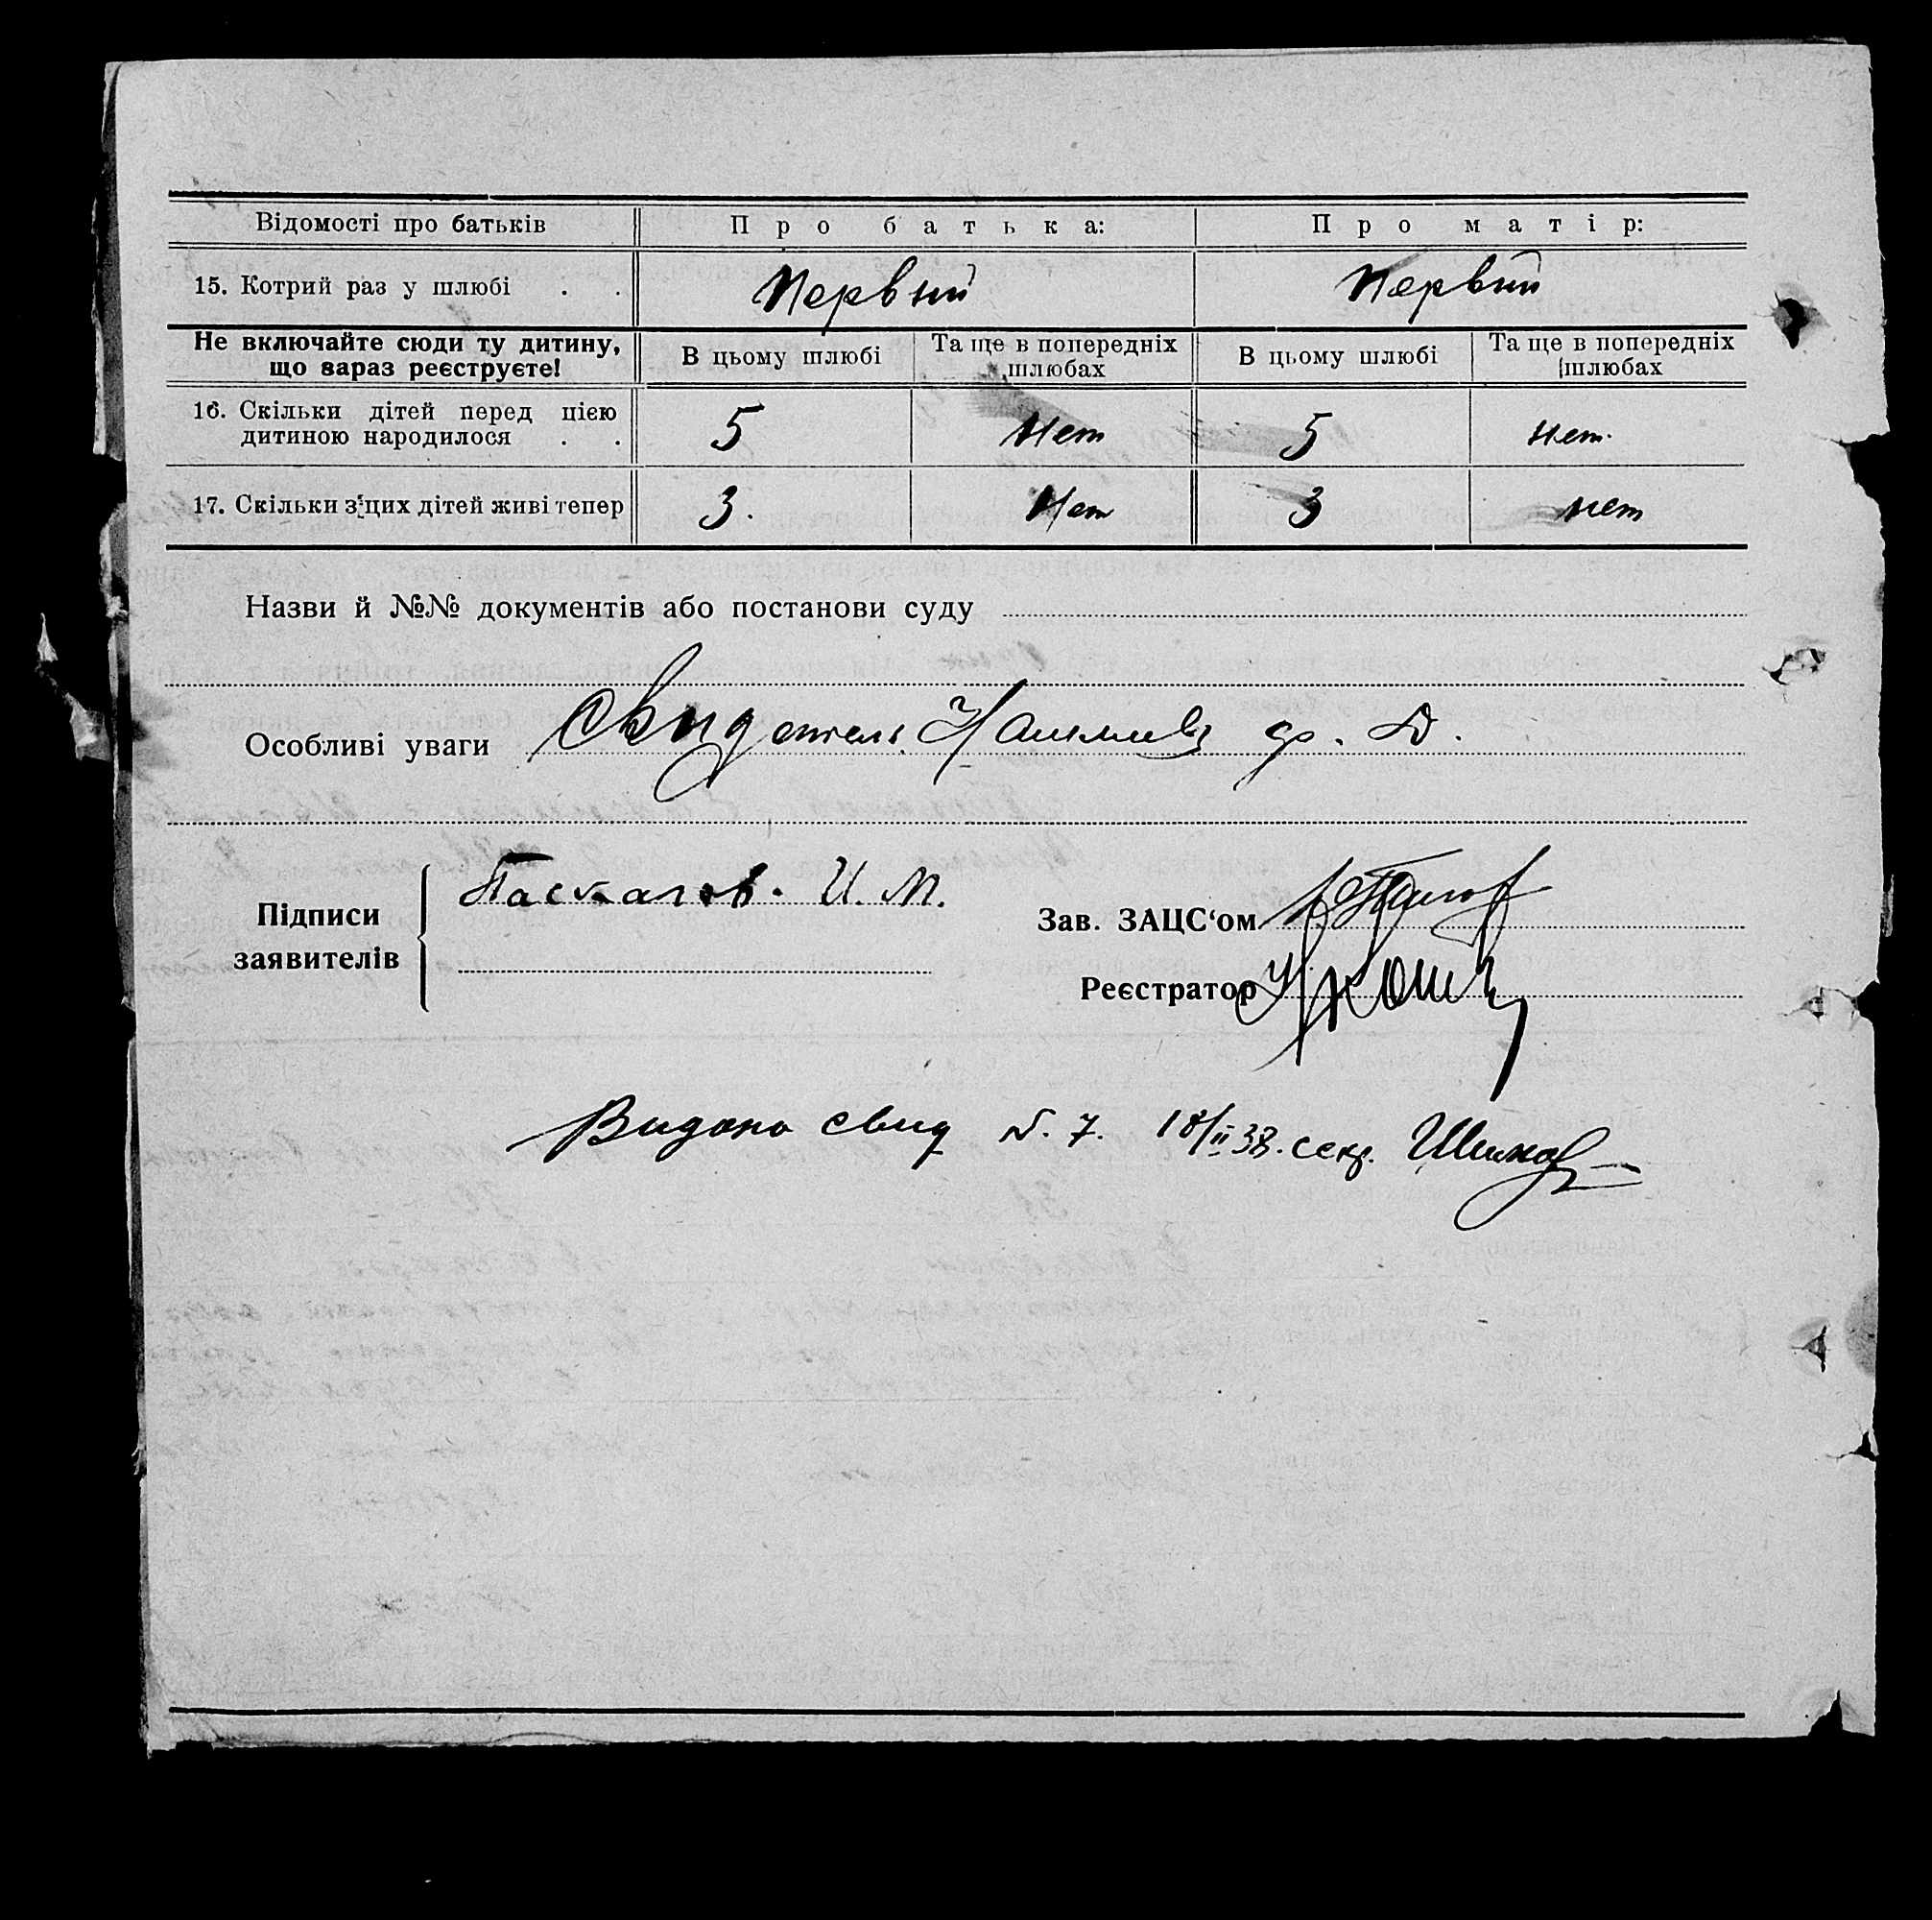 Відомості про батьків Про батька: Про матір:
15. Котрий раз у шлюбі . . Первый Первый
Не включайте сюди ту дитину, що зараз реєструєте! В цьому шлюбі Та ще в попередніх шлюбах В цьому шлюбі Та ще в попередніх шлюбах
16. Скільки дітей перед цією
дитиною народилося . . 5 Нет 5 нет.
17. Скільки з цих дітей живі тепер 3. Нет 3 нет
Назви й №№ документів або постанови суду
Особливі уваги Свидетель ф. Д.
Підписи заявителів Паскалов. И. М.
Зав. ЗАЦС‘ом
Реєстратор
Видано свид N. 7. 18/II 38. секр.